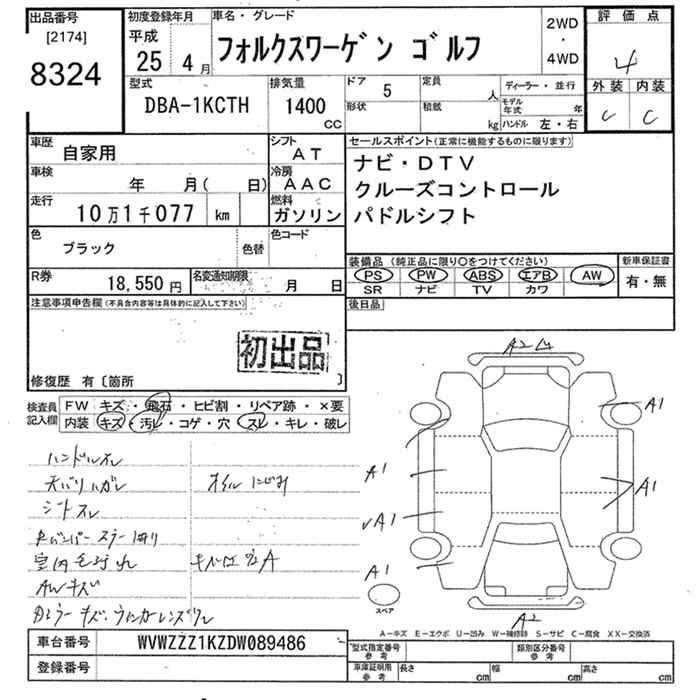 出品番号 初度登録年月 車名・グレード 2WD 評価点
[2174] 平成 フォルクスワーゲン ゴルフ ・
8324 25 4月 4WD 4
型式 排気量 ドア 5 定員 人 ディーラー・並行 外装 内装
DBA-1KCTH 1400 CC 形状 積載 kg モデル年式 年 C C
ハンドル 左・右
車歴 自家用 シフト AT セールスポイント(正常に機能するものに限ります)
車検 年 月( 日) 冷房 AAC ナビ・DTV
走行 10万1千077 km 燃料 ガソリン クルーズコントロール
パドルシフト
色 ブラック 色替 色コード
装備品 (純正品に限り〇をつけてください) 新車保証書
R券 18,550円 名変通知期限 月 日 PS PW ABS エアB AW 有・無
SR ナビ TV カワ
注意事項申告欄(不具合内容等は具体的に記入して下さい) 後日品
初出品
修復歴 有〔箇所 〕
検査員記入欄 FW キズ・飛石・ヒビ割・リペア跡・×要
内装 キズ・汚レ・コゲ・穴・スレ・キレ・破レ
A2
A1
ハンドルスレ
天バリハガレ オイルにじみ A1
A1
シートスレ
A1
室内毛汚れ
A1
AWキズ
スペア
A2
A-キズ E-エクボ U-凹み W-補修跡 S-サビ C-腐食 XX-交換済
車台番号 WVWZZZ1KZDW089486 型式指定番号参考 類別区分番号参考
登録番号 車庫証明用参考 長さ cm 幅 cm 高さ cm